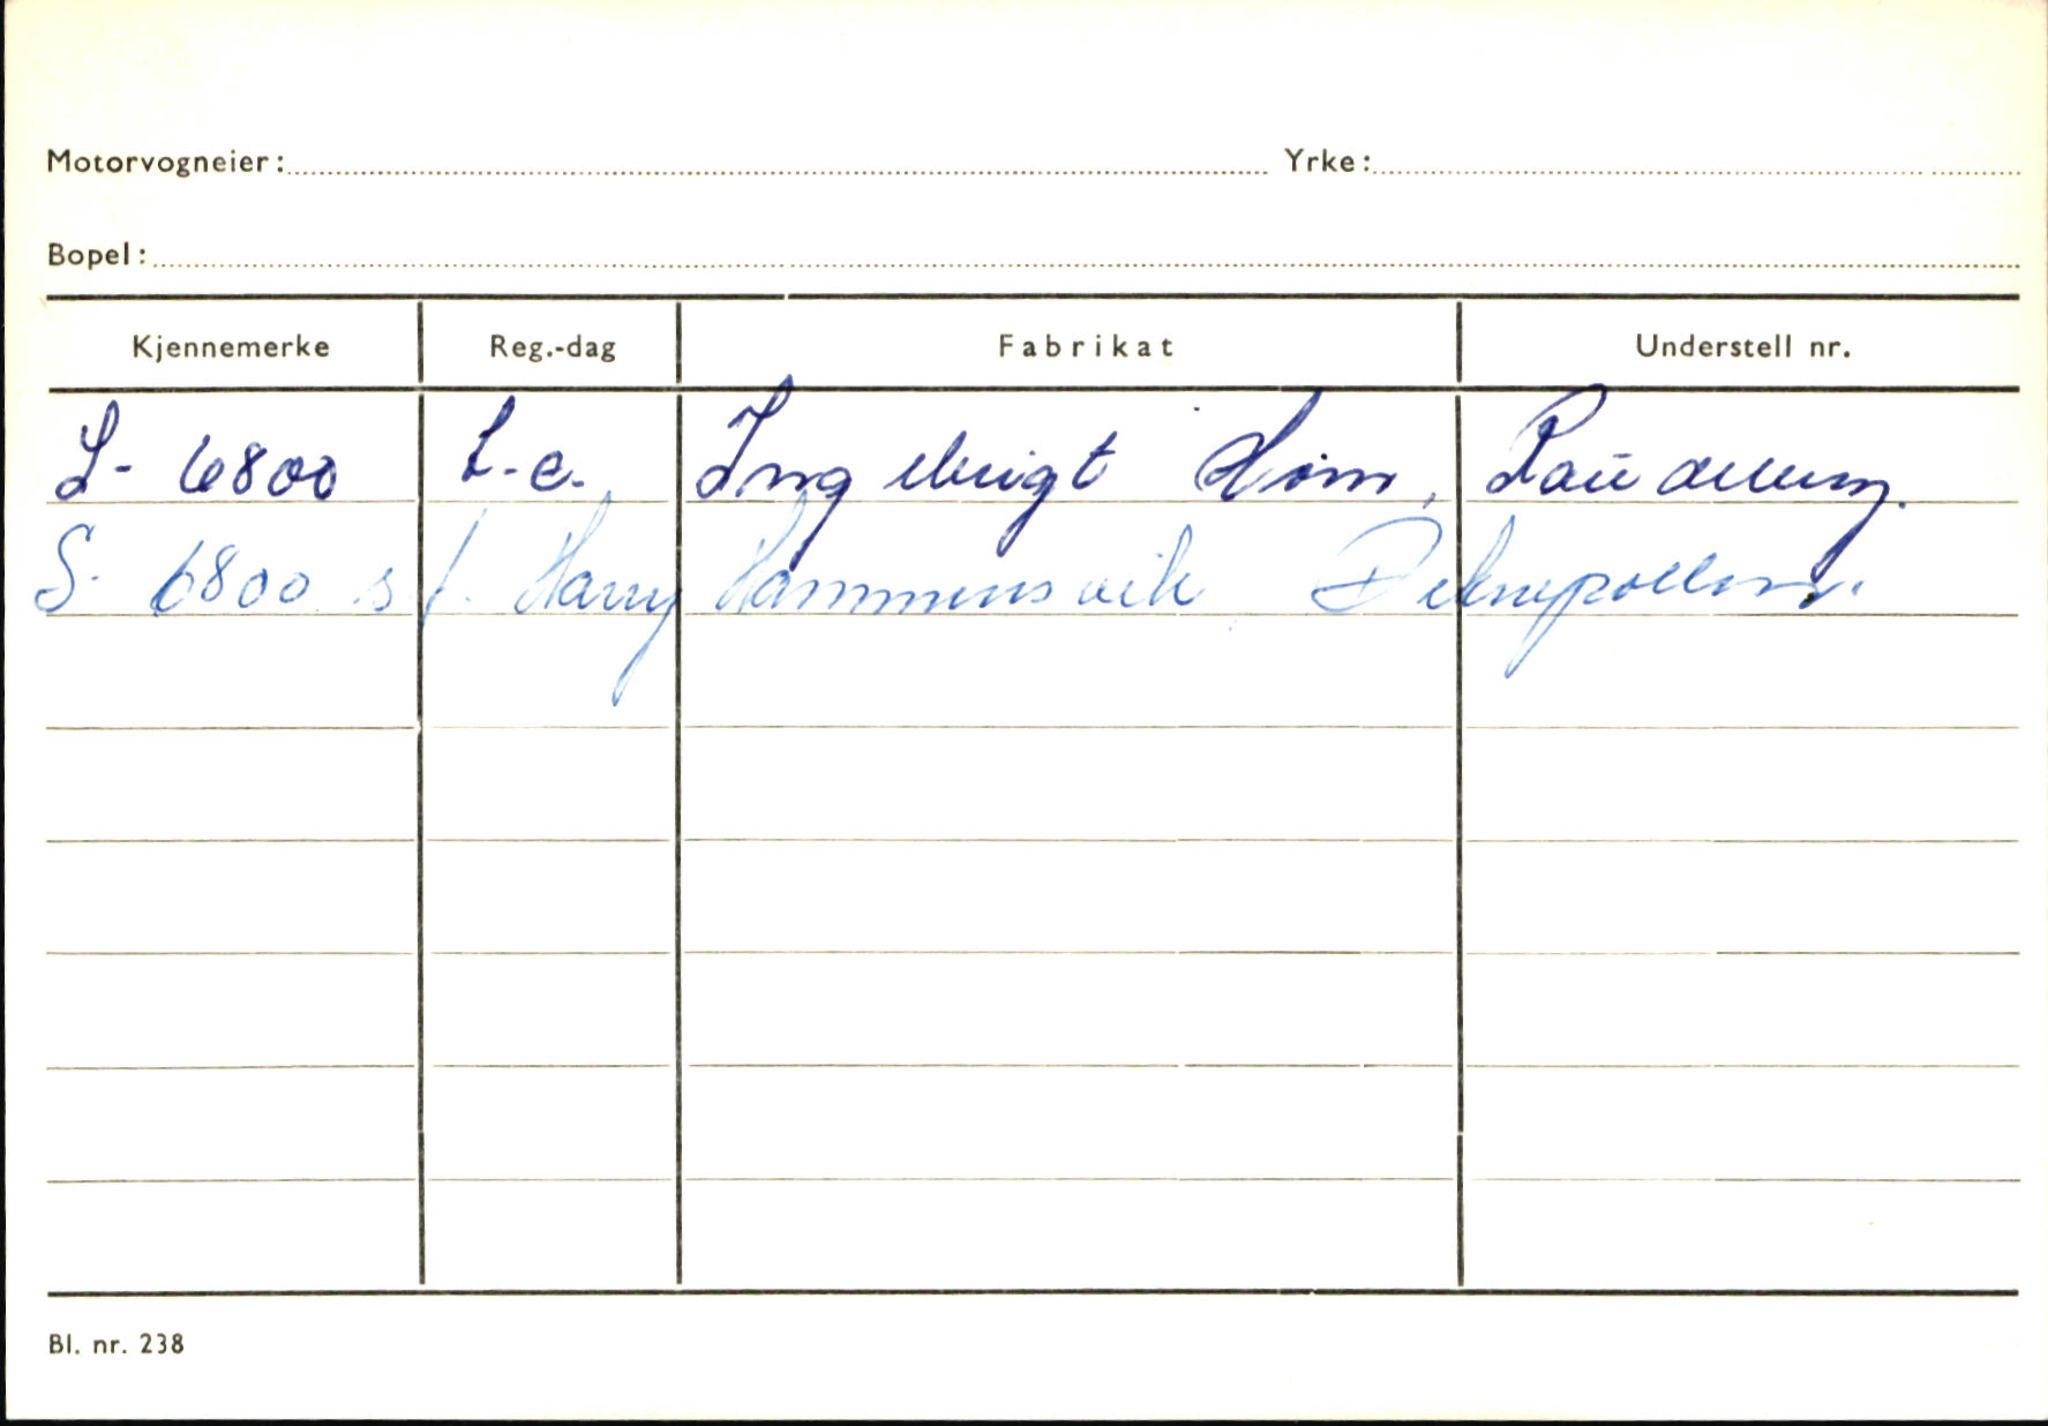 Motorvogneier: Yrke:
Bopel:
Kjennemerke Reg.-dag Fabrikat Understell nr.
S- 6800 L-c. Ingebrigt
S- 6800 s/. Harry Hammersvik, Deknepollen.
Bl. nr. 238